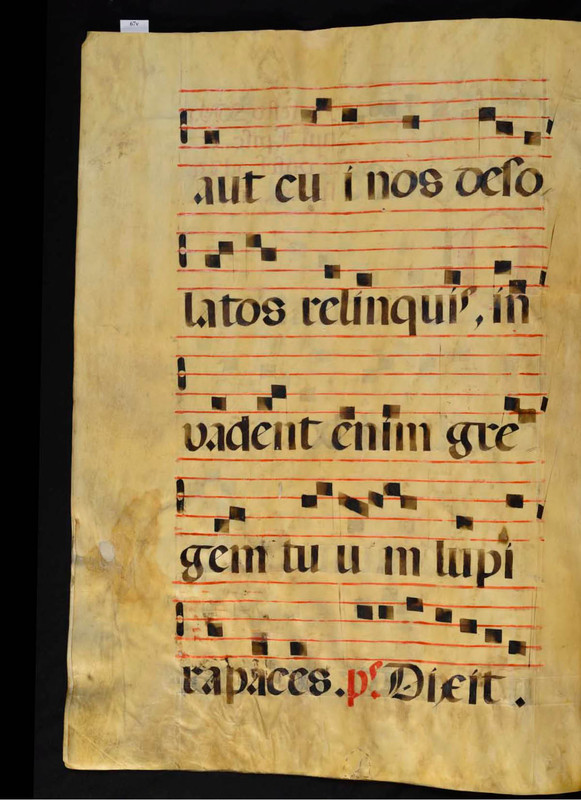 67v
aut cu i nos deso
latos relinquis, in
vadent enim gre
gem tu u m lupi
rapaces. ps. Dixit.